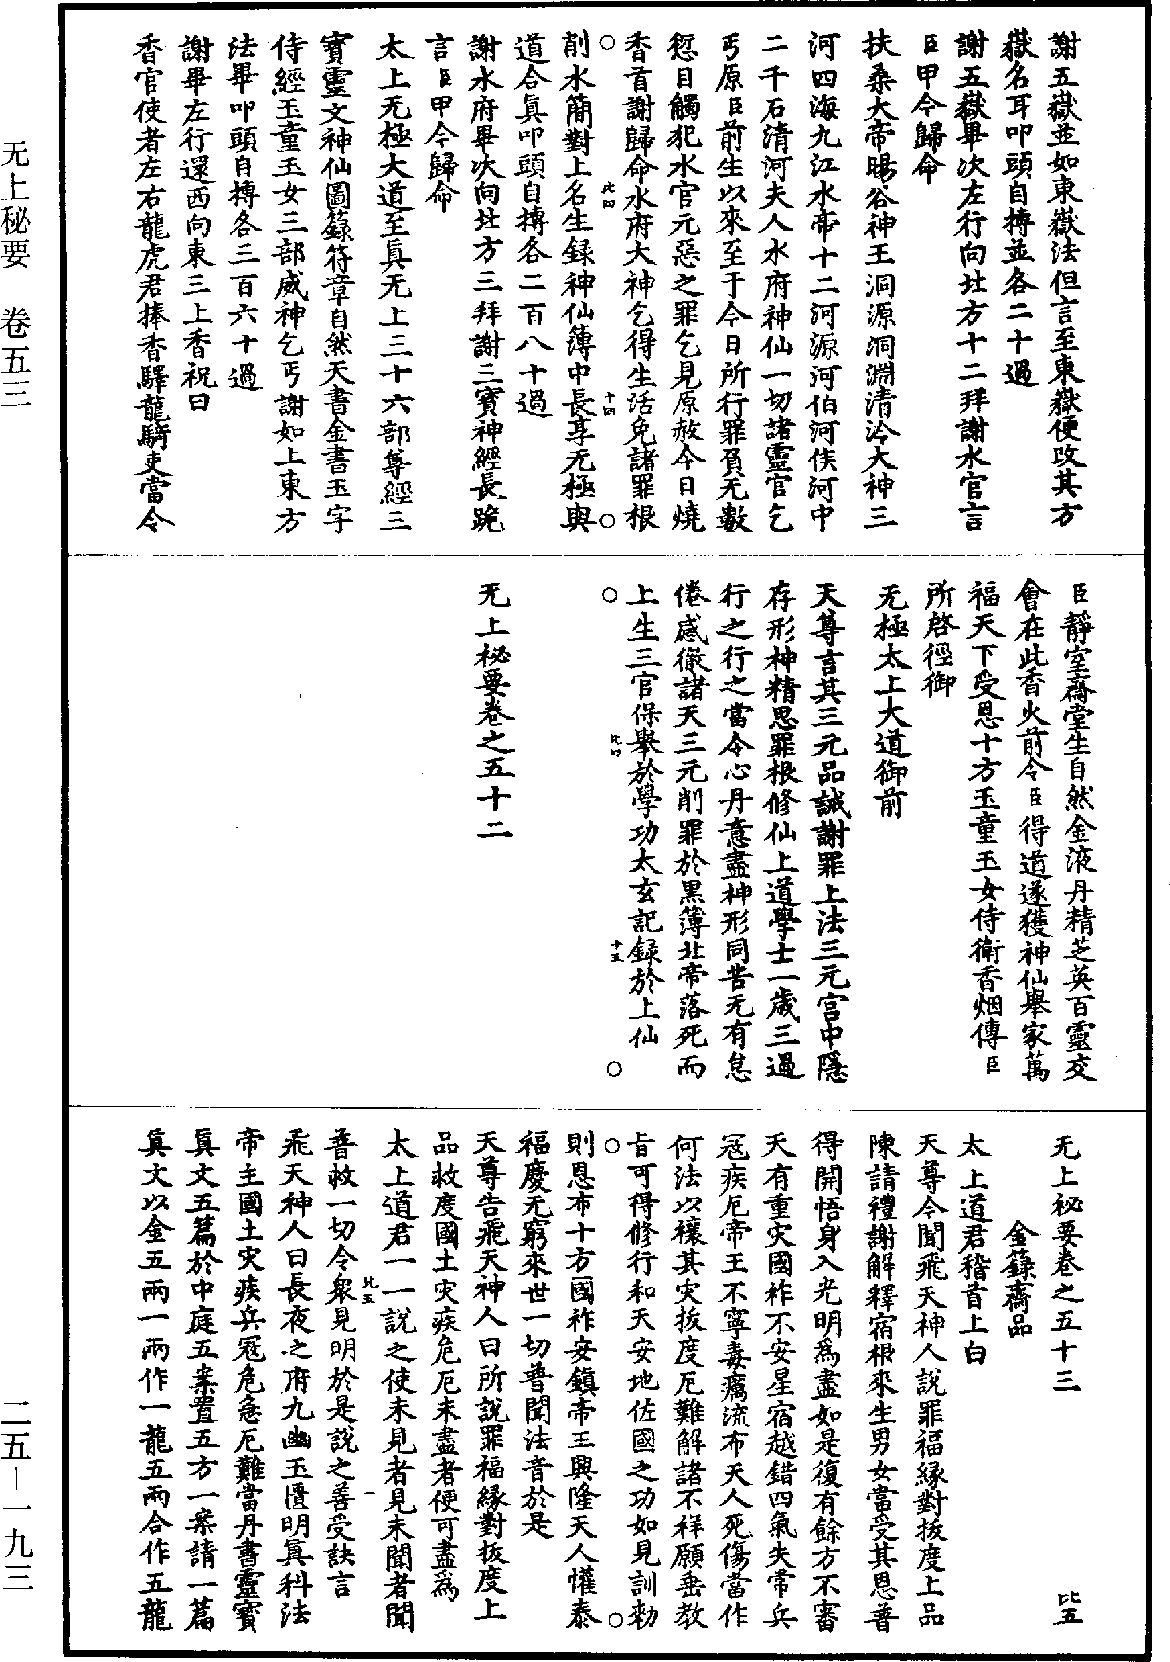 謝五嶽並如東嶽法但言至東嶽便改其方
嶽名耳叩頭自摶並各二十過
謝五嶽畢次左行向北方十二拜謝水官言
臣甲今歸命
扶桑大帝暘谷神王洞源洞淵清泠大神三
河四海九江水帝十二河源河伯河侯河中
二千石清河夫人水府神仙一切諸靈官乞
丐原臣前生以來至于今日所行罪負无數
愆目觸犯水官元惡之罪乞見原赦今日燒
香首謝歸命水府大神乞得生活免諸罪根
比四
十四
削水簡對上名生録神仙簿中長享无極與
道合真叩頭自摶各二百八十過
謝水府畢次向北方三拜謝三寳神經長跪
言臣甲今歸命
太上无極大道至真无上三十六部尊經三
寳靈文神仙圖籙符章自然天書金書玉字
侍經玉童玉女三部威神乞丐謝如上東方
法畢叩頭自摶各三百六十過
謝畢左行還西向東三上香祝曰
香官使者左右龍虎君捧香驛龍騎吏當令
臣靜室齋堂生自然金液丹精芝英百靈交
會在此香火前令臣得道遂獲神仙舉家萬
福天下受恩十方玉童玉女侍衛香烟傳臣
所啓徑御
无極太上大道御前
天尊言其三元品誡謝罪上法三元宫中隱
存形神精思罪根修仙上道學士一歲三過
行之行之當令心丹意盡神形同苦无有怠
倦感徹諸天三元削罪於黑簿北帝落死而
上生三官保舉於學功太玄記録於上仙
比四
十五
无上祕要卷之五十二
无上祕要卷之五十三
比五
金籙齋品
太上道君稽首上白
天尊今聞飛天神人説罪福緣對拔度上品
陳請禮謝解釋宿根來生男女當受其恩普
得開悟身入光明爲盡如是復有餘方不審
天有重灾國祚不安星宿越錯四氣失常兵
冦疾厄帝王不寧毒癘流布天人死傷當作
何法以禳其灾拔度厄難解諸不祥願垂教
旨可得修行和天安地佐國之功如見訓勑
則恩布十方國祚安鎮帝王興隆天人懽泰
福慶无窮來世一切普聞法音於是
天尊告飛天神人曰所説罪福緣對拔度上
品救度國土灾疾危厄未盡者便可盡爲
太上道君一一説之使未見者見未聞者聞
比五
一
普救一切令衆見明於是説之善受訣言
飛天神人曰長夜之府九幽玉匱明真科法
帝主國土灾疾兵冦危急厄難當丹書靈寳
真文五篇於中庭五案置五方一案請一篇
真文以金五兩一兩作一龍五兩合作五龍
无上秘要　卷五三
二五—一九三